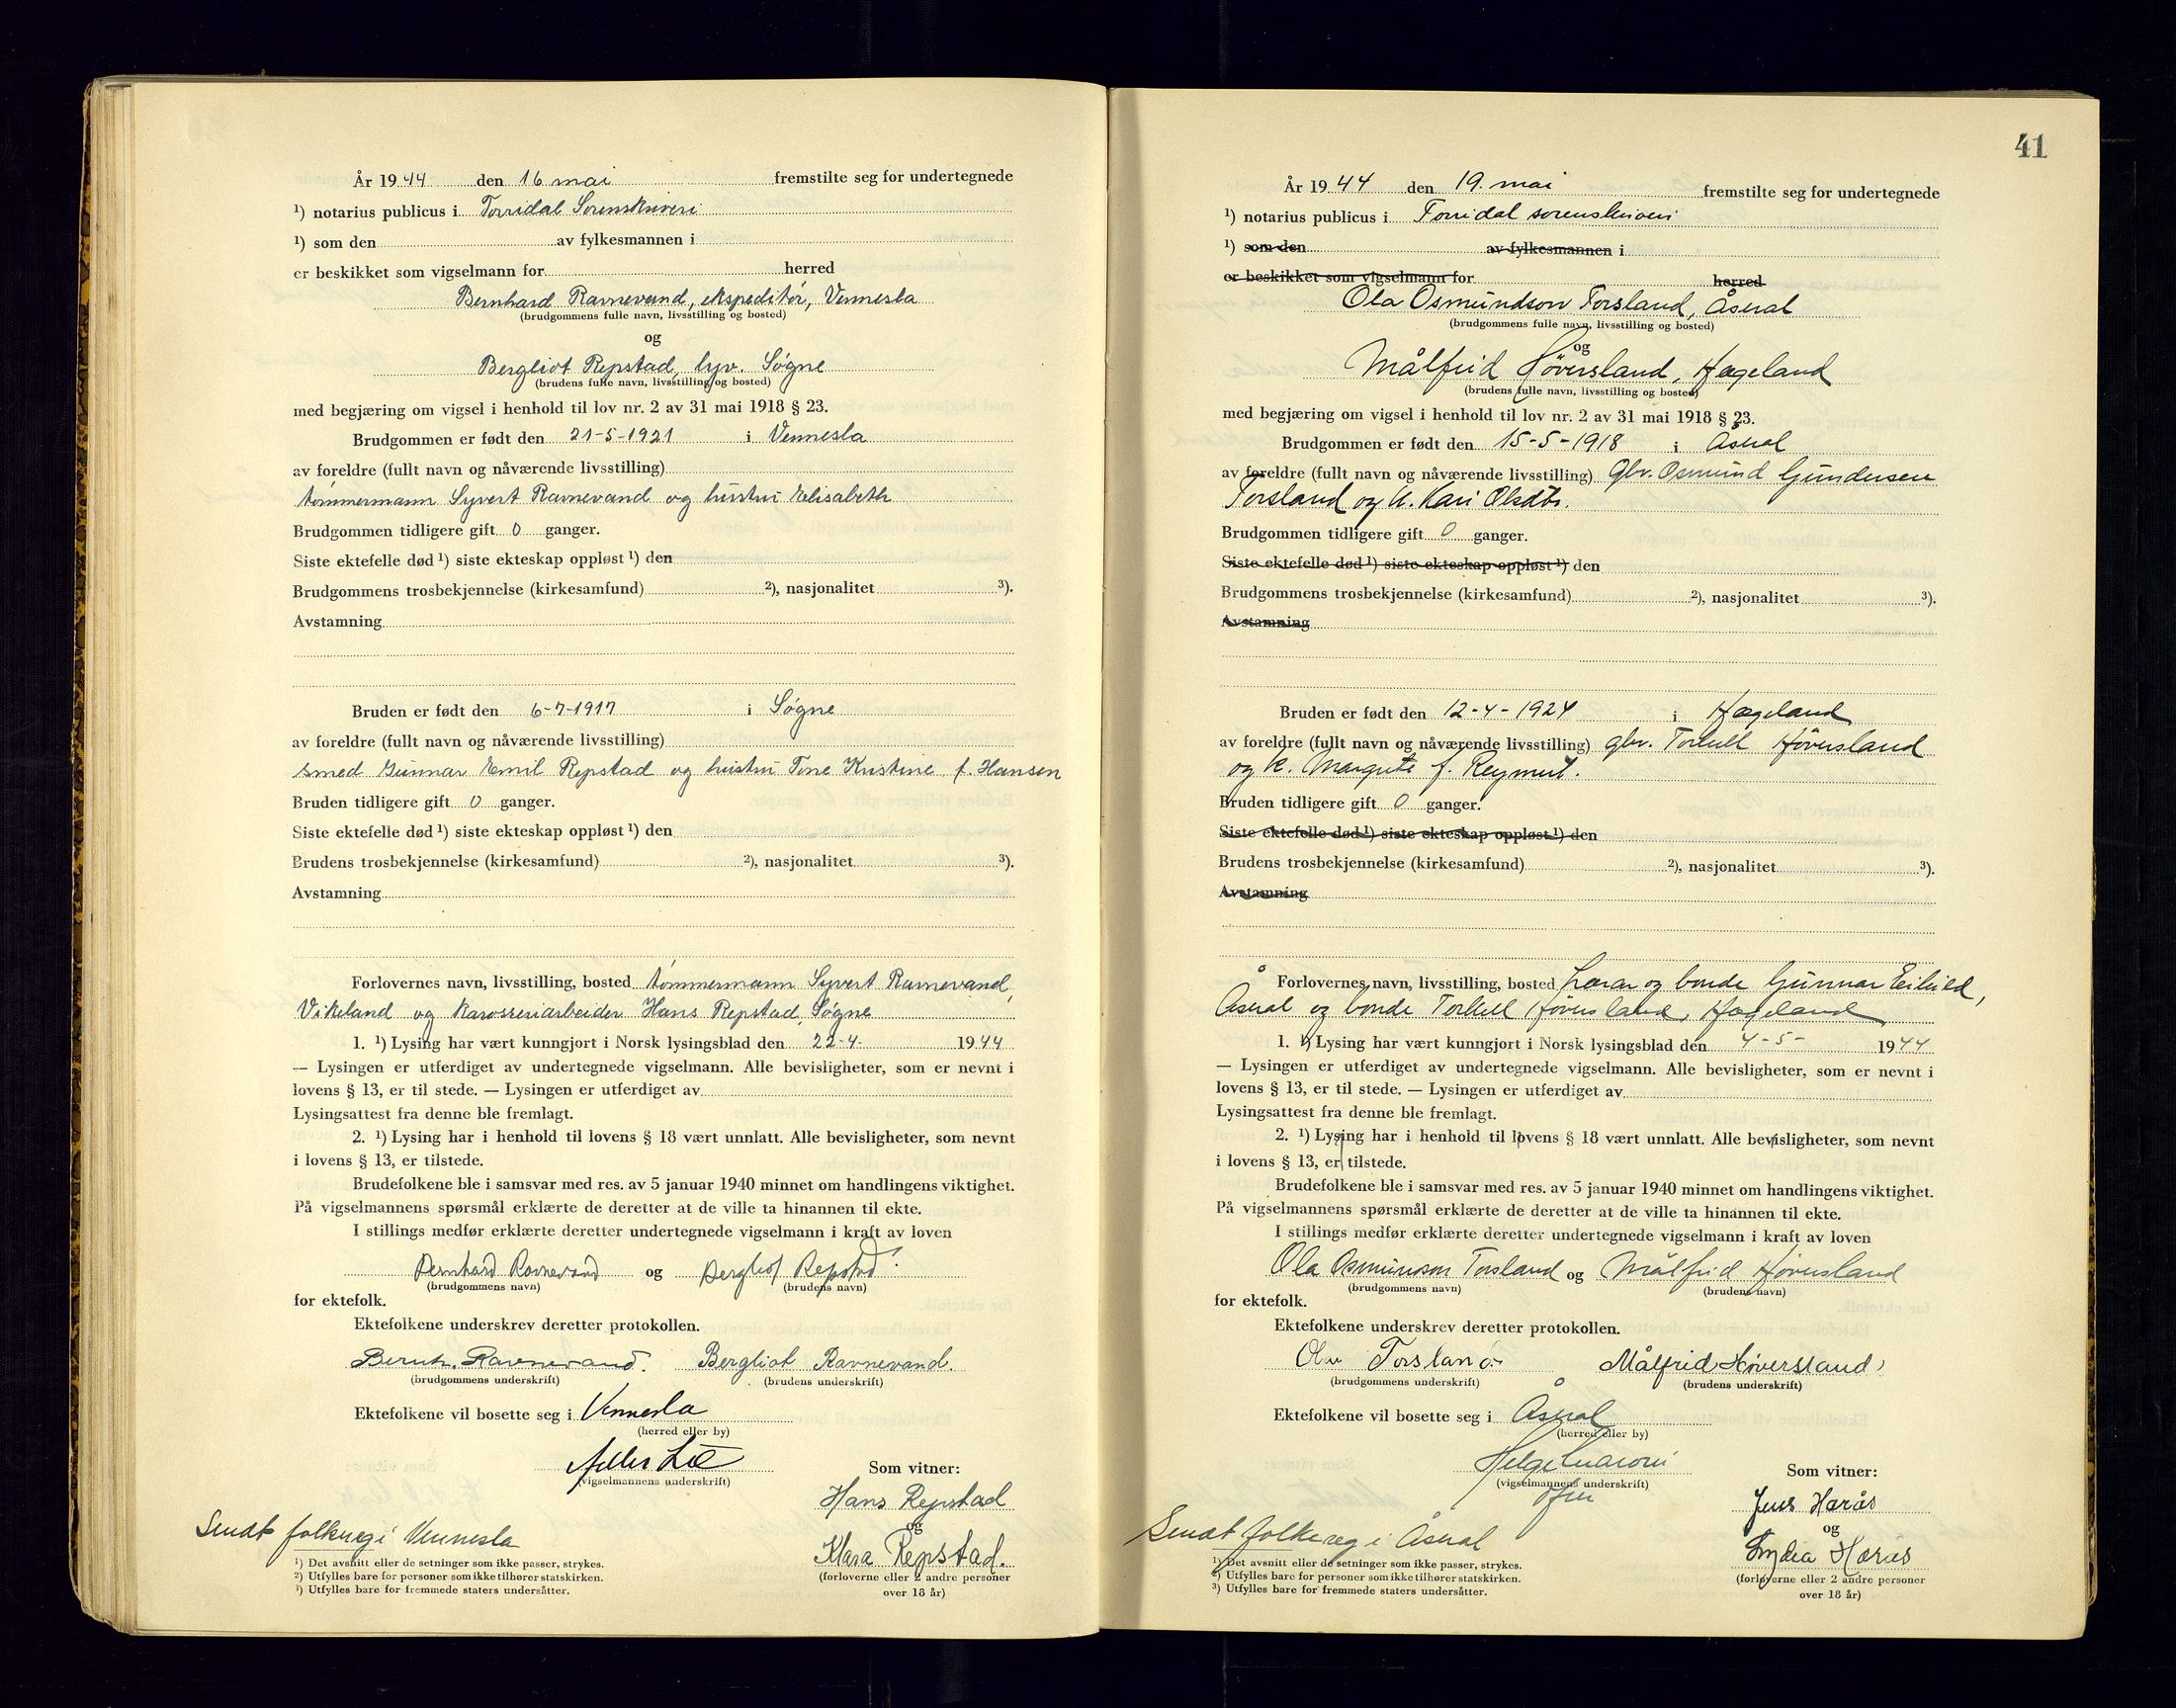 År 1944 den 16 mai fremstilte seg for undertegnede
¹) notarius publicus i Torridal Sorenskriveri
¹) som den av fylkesmannen i
er beskikket som vigselmann for herred
Bernhard Ravnevand, ekspeditør, Vennesla
(brudgommens fulle navn, livsstilling og bosted)
og
Bergliot Repstad, syv. Søgne
(brudens fulle navn, livsstilling og bosted)
med begjæring om vigsel i henhold til lov nr. 2 av 31 mai 1918 § 23.
Brudgommen er født den 21-5-1921 i Vennesla
av foreldre (fullt navn og nåværende livsstilling)
tømmermann Syvert Ravnevand og hustru Elisabeth
Brudgommen tidligere gift 0 ganger.
Siste ektefelle død ¹) siste ekteskap oppløst ¹) den
Brudgommens trosbekjennelse (kirkesamfund) ²), nasjonalitet ³).
Avstamning
Bruden er født den 6-7-1917 i Søgne
av foreldre (fullt navn og nåværende livsstilling)
smed Gunnar Emil Repstad og hustru Tone Kristine f. Hansen
Bruden tidligere gift 0 ganger.
Siste ektefelle død ¹) siste ekteskap oppløst ¹) den
Brudens trosbekjennelse (kirkesamfund) ²), nasjonalitet ³).
Avstamning
Forlovernes navn, livsstilling, bosted tømmermann Syvert Ravnevand,
Vikeland og karosseriarbeider Hans Repstad, Søgne
1. ¹) Lysing har vært kunngjort i Norsk lysingsblad den 22-4- 1944
— Lysingen er utferdiget av undertegnede vigselmann. Alle bevisligheter, som er nevnt i
lovens § 13, er til stede. — Lysingen er utferdiget av
Lysingsattest fra denne ble fremlagt.
2. ¹) Lysing har i henhold til lovens § 18 vært unnlatt. Alle bevisligheter, som nevnt
i lovens § 13, er tilstede.
Brudefolkene ble i samsvar med res. av 5 januar 1940 minnet om handlingens viktighet.
På vigselmannens spørsmål erklærte de deretter at de ville ta hinannen til ekte.
I stillings medfør erklærte deretter undertegnede vigselmann i kraft av loven
Bernhard Ravnevand og Bergliot Repstad
(brudgommens navn) (brudens navn)
for ektefolk.
Ektefolkene underskrev deretter protokollen.
Bernh. Ravnevand. Bergliot Ravnevand.
(brudgommens underskrift) (brudens underskrift)
Ektefolkene vil bosette seg i Vennesla
(herred eller by)
(vigselmannens underskrift) Som vitner:
Hans Repstad
og
Sendt folkereg i Vennesla
Klara Repstad.
(forloverne eller 2 andre personer
over 18 år)
¹) Det avsnitt eller de setninger som ikke passer, strykes.
²) Utfylles bare for personer som ikke tilhører statskirken.
³) Utfylles bare for fremmede staters undersåtter.
41
År 1944 den 19. mai fremstilte seg for undertegnede
¹) notarius publicus i Torridal sorenskriveri
¹) som den av fylkesmannen i
er beskikket som vigselmann for herred
Ola Osmundson Torsland, Åseral
(brudgommens fulle navn, livsstilling og bosted)
og
Målfrid Høversland, Hægeland
(brudens fulle navn, livsstilling og bosted)
med begjæring om vigsel i henhold til lov nr. 2 av 31 mai 1918 § 23.
Brudgommen er født den 15-5-1918 i Åseral
av foreldre (fullt navn og nåværende livsstilling) gbr. Osmund Gundersen
Torsland og k. Kari Olsdtr.
Brudgommen tidligere gift 0 ganger.
Siste ektefelle død ¹) siste ekteskap oppløst ¹) den
Brudgommens trosbekjennelse (kirkesamfund) ²), nasjonalitet ³).
Avstamning
Bruden er født den 12-4-1924 i Hægeland
av foreldre (fullt navn og nåværende livsstilling) gbr. Torkell Høversland
og k. Margrete f. Reymert.
Bruden tidligere gift 0 ganger.
Siste ektefelle død ¹) siste ekteskap oppløst ¹) den
Brudens trosbekjennelse (kirkesamfund) ²), nasjonalitet ³).
Avstamning
Forlovernes navn, livsstilling, bosted Lærar og bonde Gunnar
Åseral og bonde Torkell Høversland, Hægeland
1. ¹) Lysing har vært kunngjort i Norsk lysingsblad den 4-5- 1944
— Lysingen er utferdiget av undertegnede vigselmann. Alle bevisligheter, som er nevnt i
lovens § 13, er til stede. — Lysingen er utferdiget av
Lysingsattest fra denne ble fremlagt.
2. ¹) Lysing har i henhold til lovens § 18 vært unnlatt. Alle bevisligheter, som nevnt
i lovens § 13, er tilstede.
Brudefolkene ble i samsvar med res. av 5 januar 1940 minnet om handlingens viktighet.
På vigselmannens spørsmål erklærte de deretter at de ville ta hinannen til ekte.
I stillings medfør erklærte deretter undertegnede vigselmann i kraft av loven
Ola Osmundson Torsland og Målfrid Høversland
(brudgommens navn) (brudens navn)
for ektefolk.
Ektefolkene underskrev deretter protokollen.
Olav Torsland Målfrid Høversland
(brudgommens underskrift) (brudens underskrift)
Ektefolkene vil bosette seg i Åseral
(herred eller by)
Helge
(vigselmannens underskrift) Som vitner:
Jens Harås
og
Sendt folkereg i Åseral
Lydia Harås
(forloverne eller 2 andre personer
over 18 år)
¹) Det avsnitt eller de setninger som ikke passer, strykes.
²) Utfylles bare for personer som ikke tilhører statskirken.
³) Utfylles bare for fremmede staters undersåtter.